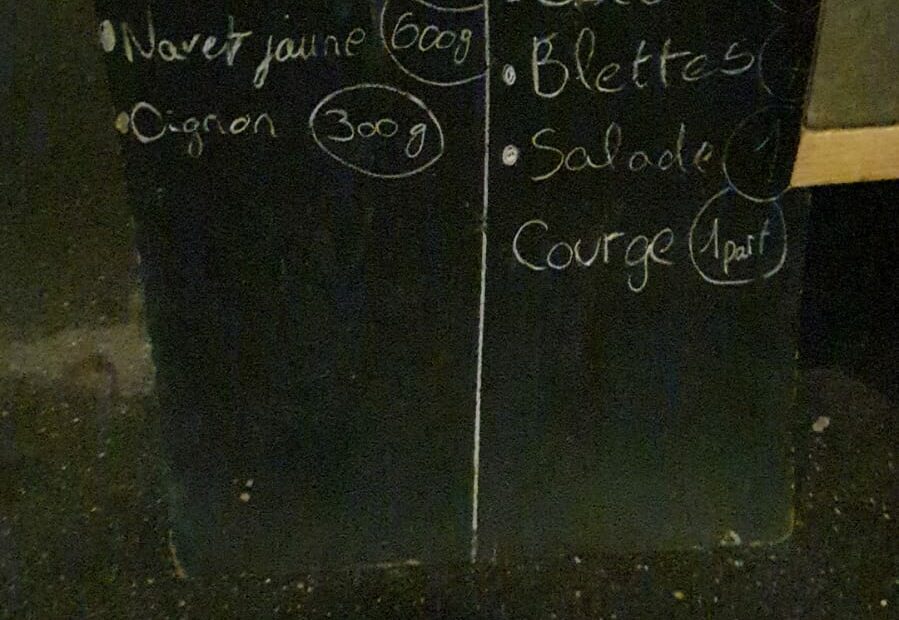 • Navet jaune 600g
• Oignon 300g
• Blettes
• Salade 1
Courge 1 part